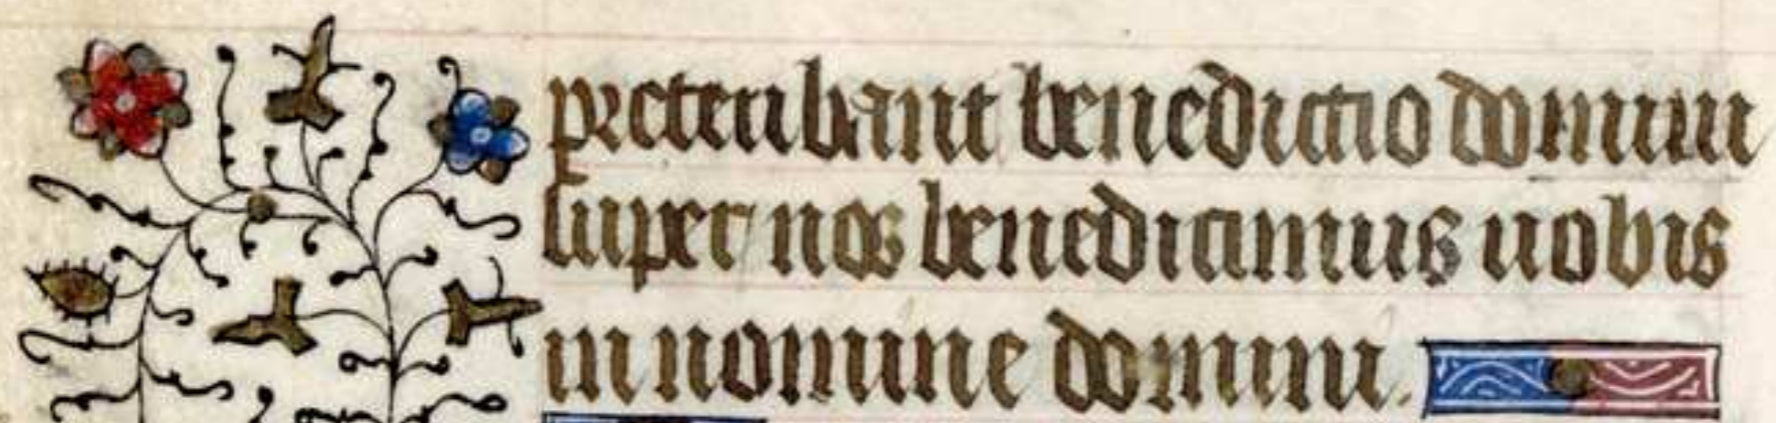 preteribant benedictio domini
super nos benediximus uobis
in nomine domini.